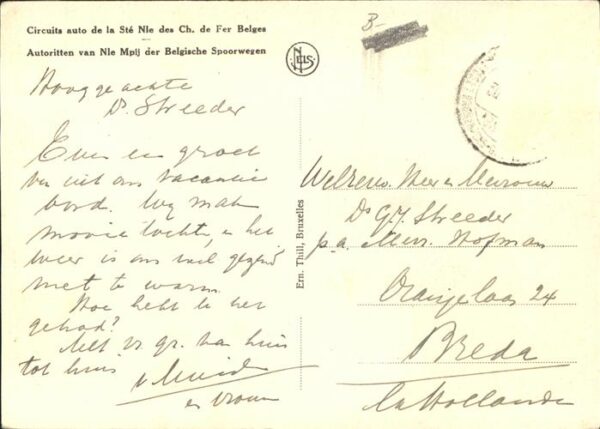 Circuits auto de la Sté Nle des Ch. de Fer Belges
Autoritten van Nle Mpij der Belgische Spoorwegen
Hooggeachte
Ds. Streeder
Even een groet
van uit ons vacantie
oord. Wij maken
mooie tochten en het
weer is ons wel gezind
niet te warm.
Hoe hebt u het
gehad?
Met vr. gr. van huis
tot huis
v Muiden
en vrouw
Ern. Thill, Bruxelles
NELS
B-
Weleerw. Heer en Mevrouw
Ds G.J. Streeder
p.a. Mevr. Hofman
Oranjelaan 24
Breda
in Hollande